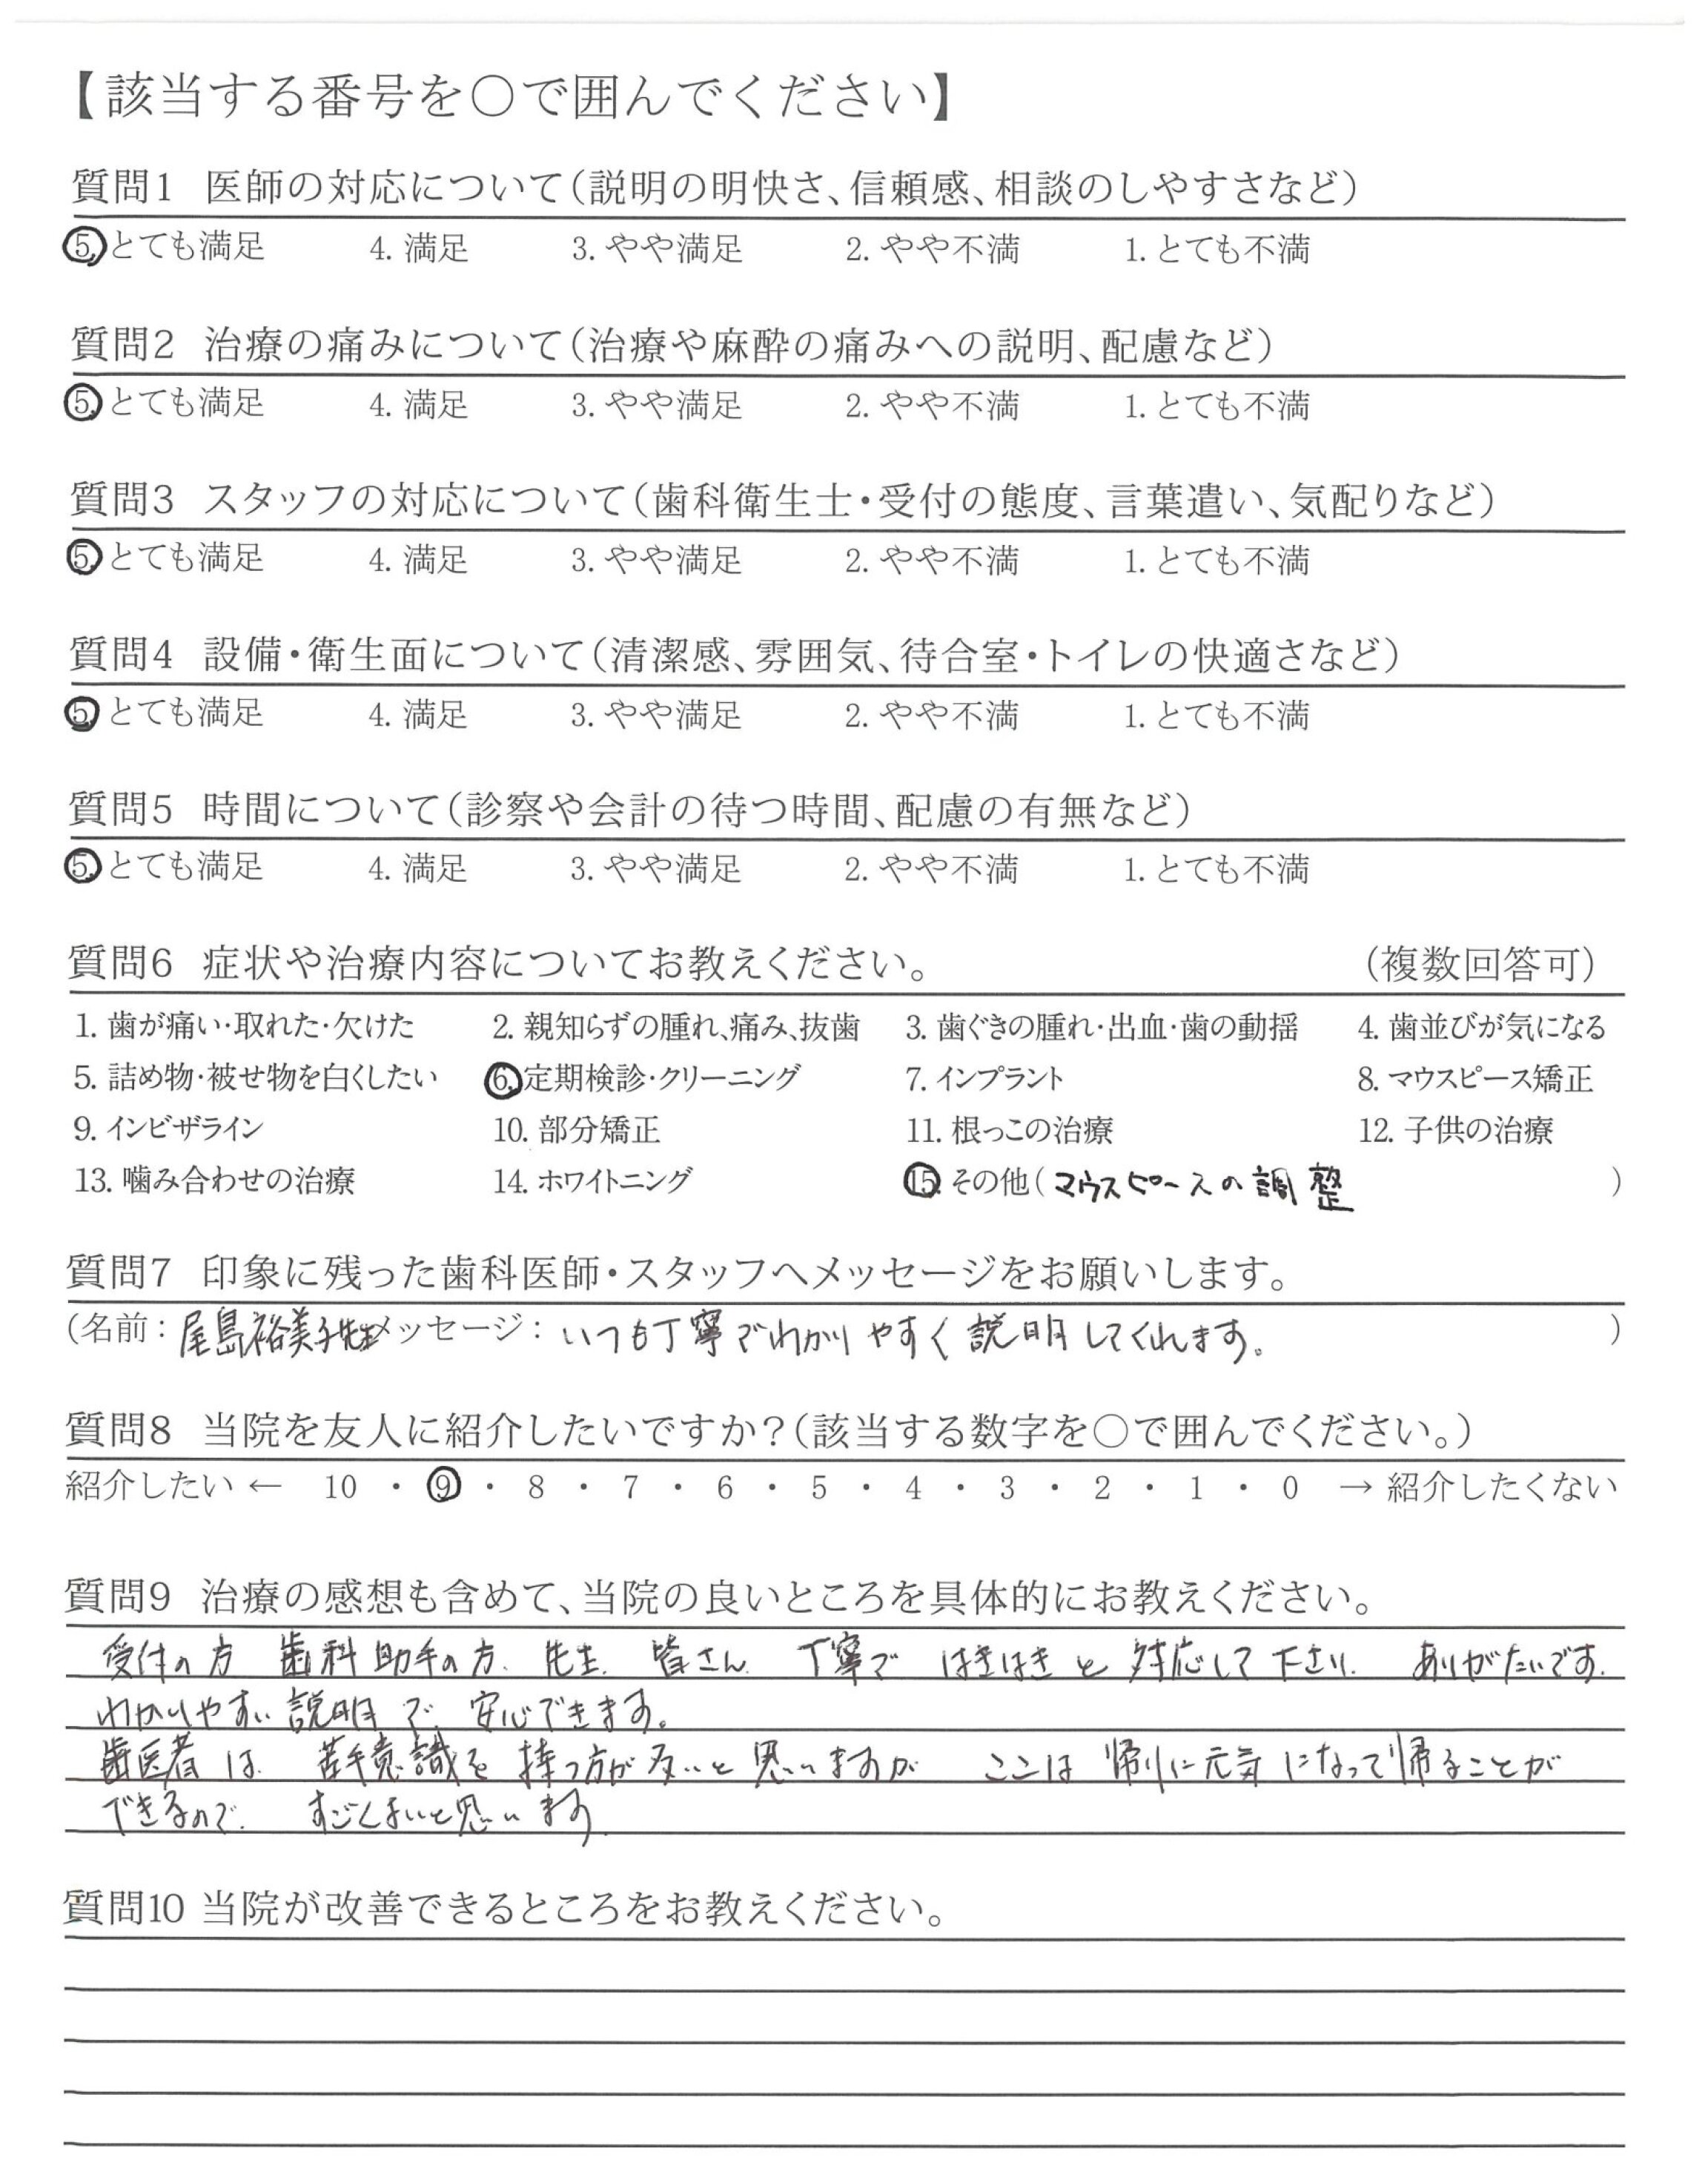 【該当する番号を○で囲んでください】
質問1 医師の対応について(説明の明快さ、信頼感、相談のしやすさなど)
5. とても満足 4. 満足 3. やや満足 2. やや不満 1. とても不満
質問2 治療の痛みについて(治療や麻酔の痛みへの説明、配慮など)
5. とても満足 4. 満足 3. やや満足 2. やや不満 1. とても不満
質問3 スタッフの対応について(歯科衛生士・受付の態度、言葉遣い、気配りなど)
5. とても満足 4. 満足 3. やや満足 2. やや不満 1. とても不満
質問4 設備・衛生面について(清潔感、雰囲気、待合室・トイレの快適さなど)
5. とても満足 4. 満足 3. やや満足 2. やや不満 1. とても不満
質問5 時間について(診察や会計の待つ時間、配慮の有無など)
5. とても満足 4. 満足 3. やや満足 2. やや不満 1. とても不満
質問6 症状や治療内容についてお教えください。 (複数回答可)
1. 歯が痛い・取れた・欠けた 2. 親知らずの腫れ、痛み、抜歯 3. 歯ぐきの腫れ・出血・歯の動揺 4. 歯並びが気になる
5. 詰め物・被せ物を白くしたい 6. 定期検診・クリーニング 7. インプラント 8. マウスピース矯正
9. インビザライン 10. 部分矯正 11. 根っこの治療 12. 子供の治療
13. 噛み合わせの治療 14. ホワイトニング 15. その他(マウスピースの調整)
質問7 印象に残った歯科医師・スタッフへメッセージをお願いします。
(名前:尾島裕美子先生 メッセージ:いつも丁寧でわかりやすく説明してくれます。)
質問8 当院を友人に紹介したいですか?(該当する数字を○で囲んでください。)
紹介したい ← 10 ・ 9 ・ 8 ・ 7 ・ 6 ・ 5 ・ 4 ・ 3 ・ 2 ・ 1 ・ 0 → 紹介したくない
質問9 治療の感想も含めて、当院の良いところを具体的にお教えください。
受付の方 歯科助手の方、先生、皆さん、丁寧で はきはきと 対応して下さり、ありがたいです。
わかりやすい説明で、安心できます。
歯医者は、苦手意識を持つ方が多いと思いますが ここは帰りに元気になって帰ることが
できるので、すごくよいと思います。
質問10 当院が改善できるところをお教えください。